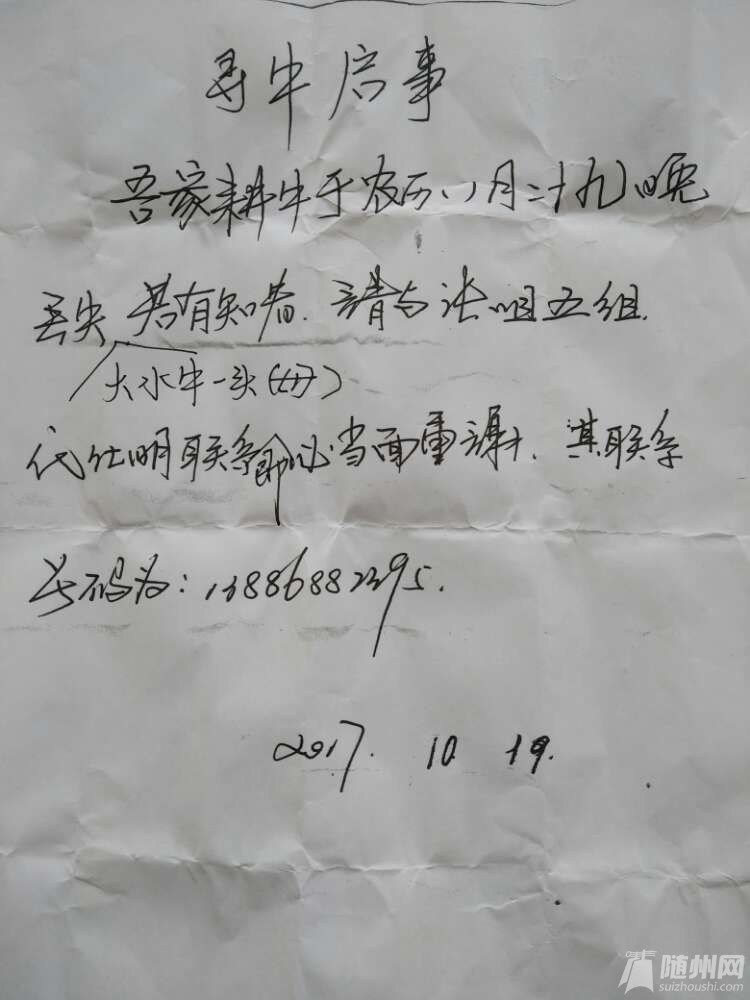 寻牛启事
吾家耕牛于农历八月二十九晚
丢失 若有知者.请与张咀五组.
大水牛一头(母)
代仕明联系 即必当面重谢.其联系
号码为:13886882395.
2017. 10 19.
随州网
suizhoushi.com